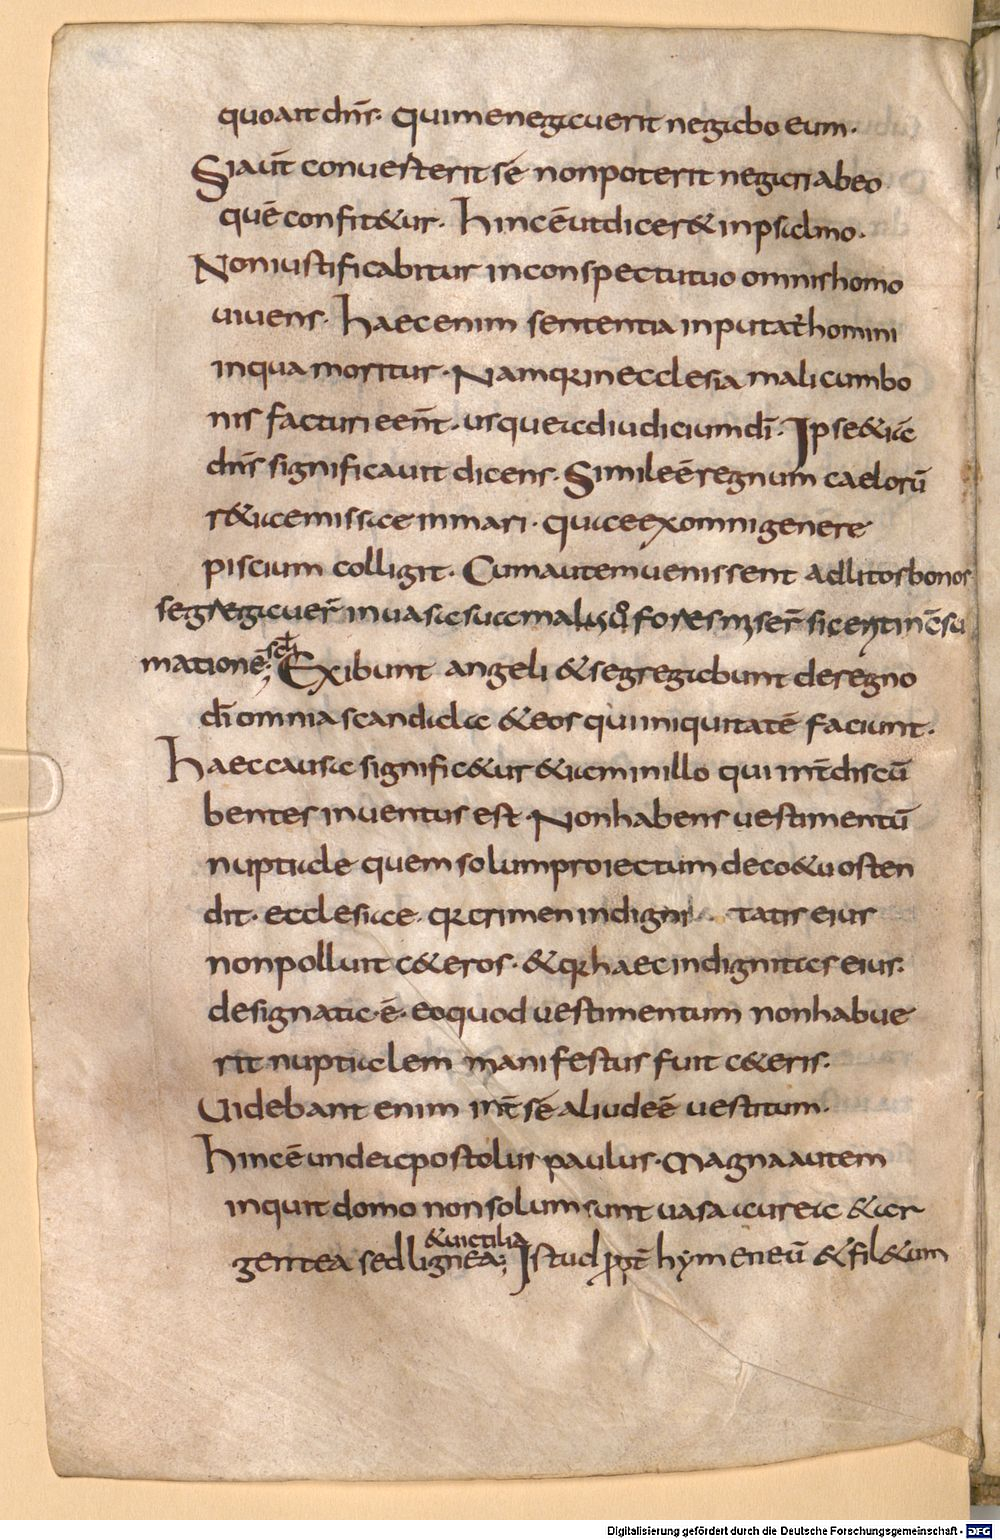 quo ait dn̄s· qui me negauerit negabo eum·
Si aūt conuesterit sē non poterit negari ab eo
quē confit&ur· hinc ē ut dicer& in psalmo·
Non iustificabitur in conspectu tuo omnis homo
uiuens· haec enim sententia inputat̄ homini
in qua moritur· Namq; in ecclesia mali cum bo
nis facturi eēnt̄· usque ad iudicium dī· Ipse &iā
dn̄s significauit dicens· Simile ē regnum caelorū
r&iae missae in mari· quae ex omni genere
piscium colligit· Cum autem uenissent ad litos bonos
segregauer̄ in uasa sua malus
matione; Exibunt angeli & segregabunt de regno
dī omnia scandala & eos qui iniquitatē faciunt·
haec causa significa&ur &iam in illo qui int̄ discū
bentes inuentus est· Non habens uestimentū
nuptiale quem solum proiectum de co&u osten
dit· ecclesiae· q; crimen indigni tatis eius
non polluit c&eros· & q; haec indignitas eius·
designata· ē· eo quod uestimentum non habue
rit nuptialem manifestus fuit c&eris·
Uidebant enim int̄ sē aliud eē uestitum·
hinc ē unde apostolus paulus· Magna autem
inquit domo non solum sunt uasa aurea & ar
& uictilia
gentea sed lignea; Istud ꝓpt̄ hymeneū & fil&um
Digitalisierung gefördert durch die Deutsche Forschungsgemeinschaft - DFG